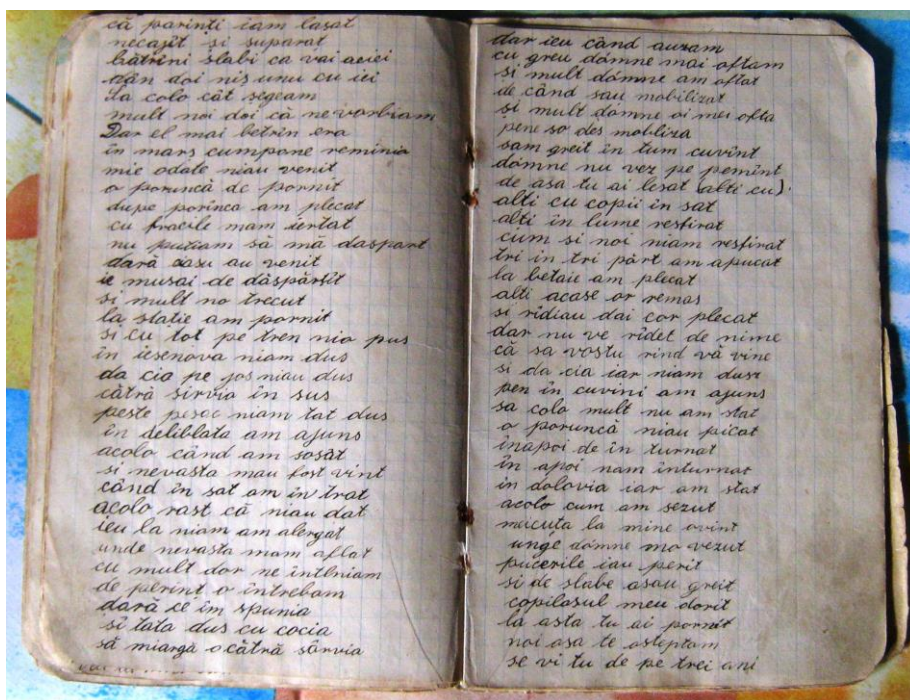 că parinti iam lasat
necajit si suparat
bătrini slabi ca vai aeiei
dân doi nis unu cu iei
Sa colo căt segeam
mult noi doi că ne vorbiam
Dar el mai betrin era
in mars cumpone reminia
mie odate niau venit
o poruncă de pornit
dupe porinca am plecat
cu fracile mam iertat
nu putiam să mă daspart
dară casu au venit
ie musai de dăspărtit
si mult no trecut
la statie am pornit
si cu tot pe tren nio pus
in iesenova niam dus
da cia pe jos niau dus
cătră sirvia in sus
peste pesac niam tat dus
in deliblata am ajuns
acolo cănd am sosăt
si nevasta mau fost vint
cănd in sat am in trat
acolo rast că niau dat
ieu la niam am alergat
unde nevasta mam aflat
cu mult dor ne intlniam
de perint o intrebam
dară ce im spunia
si tata dus cu cocia
să miargă o cătră sărvia
dar ieu cănd auzam
cu greu domne mai oftam
si mult domne am oftat
de cănd sau mobilizat
si mult domne oi mei ofta
pene so des mobliza
sam greit in tum cuvint
domne nu vez pe pemint
de asa tu ai lesat (alti cu).
alti cu copii in sat
alti in lume resfirat
cum si noi niam resfirat
tri in tri părt am apucat
la betaie am plecat
alti acase or remas
si ridiau dai cor plecat
dar nu ve ridet de nime
că sa vostu rind vă vine
si da cia iar niam dusr
pen in cuvini am ajuns
sa colo mult nu am stat
o poruncă niau picat
inapoi de in turnat
in apoi nam inturnat
in dolovia iar am stat
acolo cum am sezut
măcuta la mine ovint
unge domne mo vezut
puterile iau perit
si de slabe asau greit
copilasul meu dorit
la asta tu ai pornit
noi asa te asteptam
se vi tu de pe trei ani